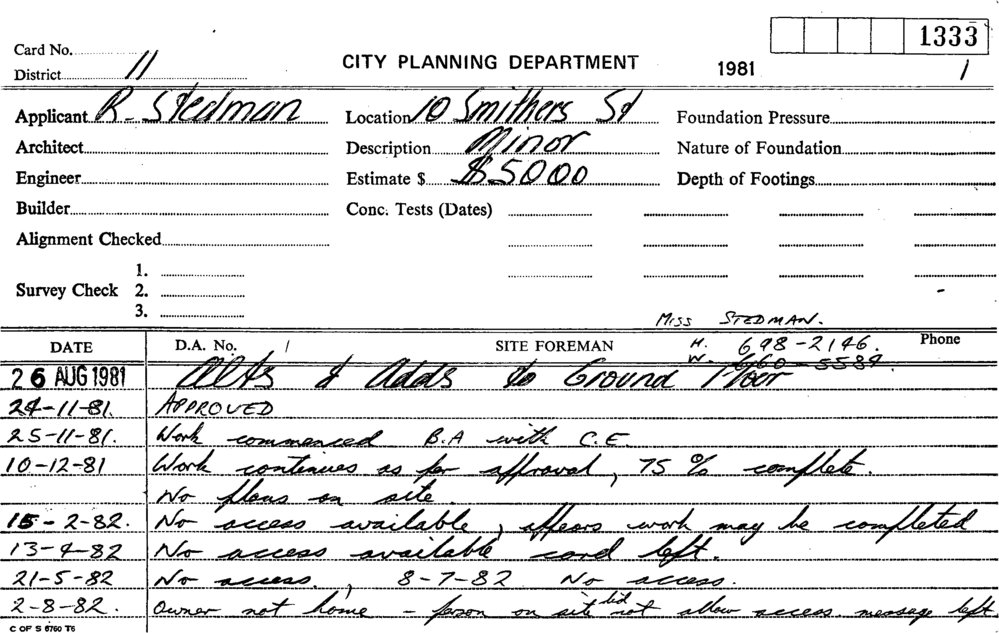 1333
Card No.
District 11 CITY PLANNING DEPARTMENT 1981 1
Applicant R. Stedman Location 10 Smithers St Foundation Pressure
Architect Description Minor Nature of Foundation
Engineer Estimate $ $5000 Depth of Footings
Builder Conc. Tests (Dates)
Alignment Checked
1.
Survey Check 2.
3.
MISS STEDMAN.
DATE D.A. No. / SITE FOREMAN H. 698-2146. Phone
W. 660-5589
26 AUG 1981 Alts & Adds to Ground Floor
24-11-81. APPROVED
25-11-81. Work commenced B.A with C.E.
10-12-81 Work continues as per approval, 75% complete.
No plans on site.
15-2-82. No access available, appears work may be completed
13-4-82 No access available card left.
21-5-82 No access., 8-7-82 No access.
2-8-82. Owner not home - person on site did not allow access. message left
C OF S 6760 T6